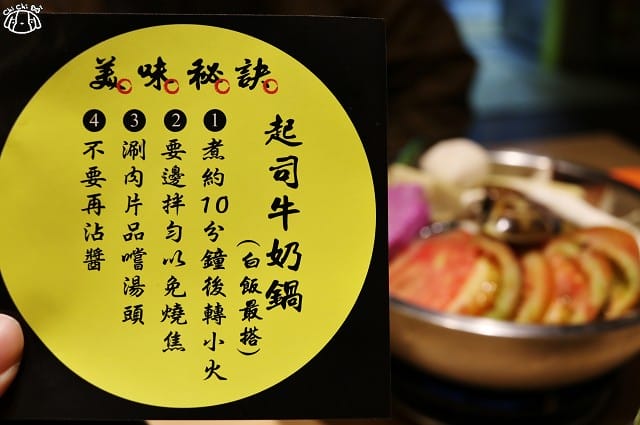 Chi Chi Boi
美味秘訣
起司牛奶鍋
(白飯最搭)
1煮約10分鐘後轉小火
2要邊拌勻以免燒焦
3涮肉片品嚐湯頭
4不要再沾醬